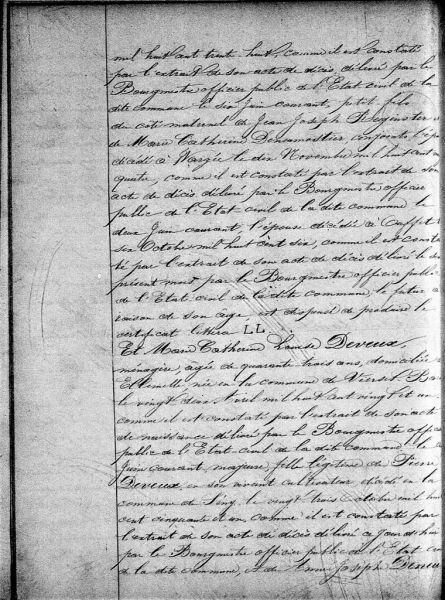 mil huit cent trente huit, comme il est constaté
par l'extrait de son acte de décès, délivré par le
Bourgmestre officier public de l'Etat civil de la
dite commune le six Juin courant, petit fils
du coté maternel de Jean Joseph
de Marie Catherine conjoints
décédé à le dix Novembre mil huit cent
quatre, comme il est constaté par l'extrait de son
acte de décès délivré par le Bourgmestre officier
public de l'Etat civil de la dite commune le
deux Juin courant l'épouse décédée à Ouffet
six Octobre mil huit cent six, comme il est const
té par l'extrait de son acte de décès délivré le
présent mois par le Bourgmestre officier public
de l'Etat civil de la dite commune, le futur à
raison de son âge, est dispensé de produire le
certificat littéra LL.
Et Marie Catherine Louise Deveux,
ménagère, agée de quarante trois ans, domiciliée à
Ellemelle née en la commune de
le vingt deux Avril mil huit cent vingt et un
comme il est constaté par l'extrait de son acte
de naissance délivré par le Bourgmestre offic
public de l'Etat civil de la dite commune, le
Juin courant, majeure, fille légitime de Pierre
Deveux, en son vivant cultivateur décédé en la
commune de le vingt trois Octobre mil huit
cent cinquante et un, comme il est constaté par
l'extrait de son acte de décès délivré ce jourd'hui
par le Bourgmestre officier public de l'Etat civ
de la dite commune, et de Anne Joseph